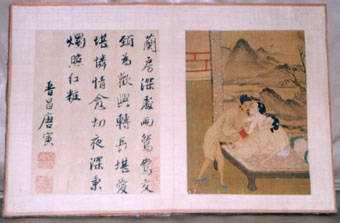 蘭房深處兩鴛鴦交
頸為歡興轉長堪愛
堪憐情意切夜深秉
燭照紅粧
晉昌唐寅